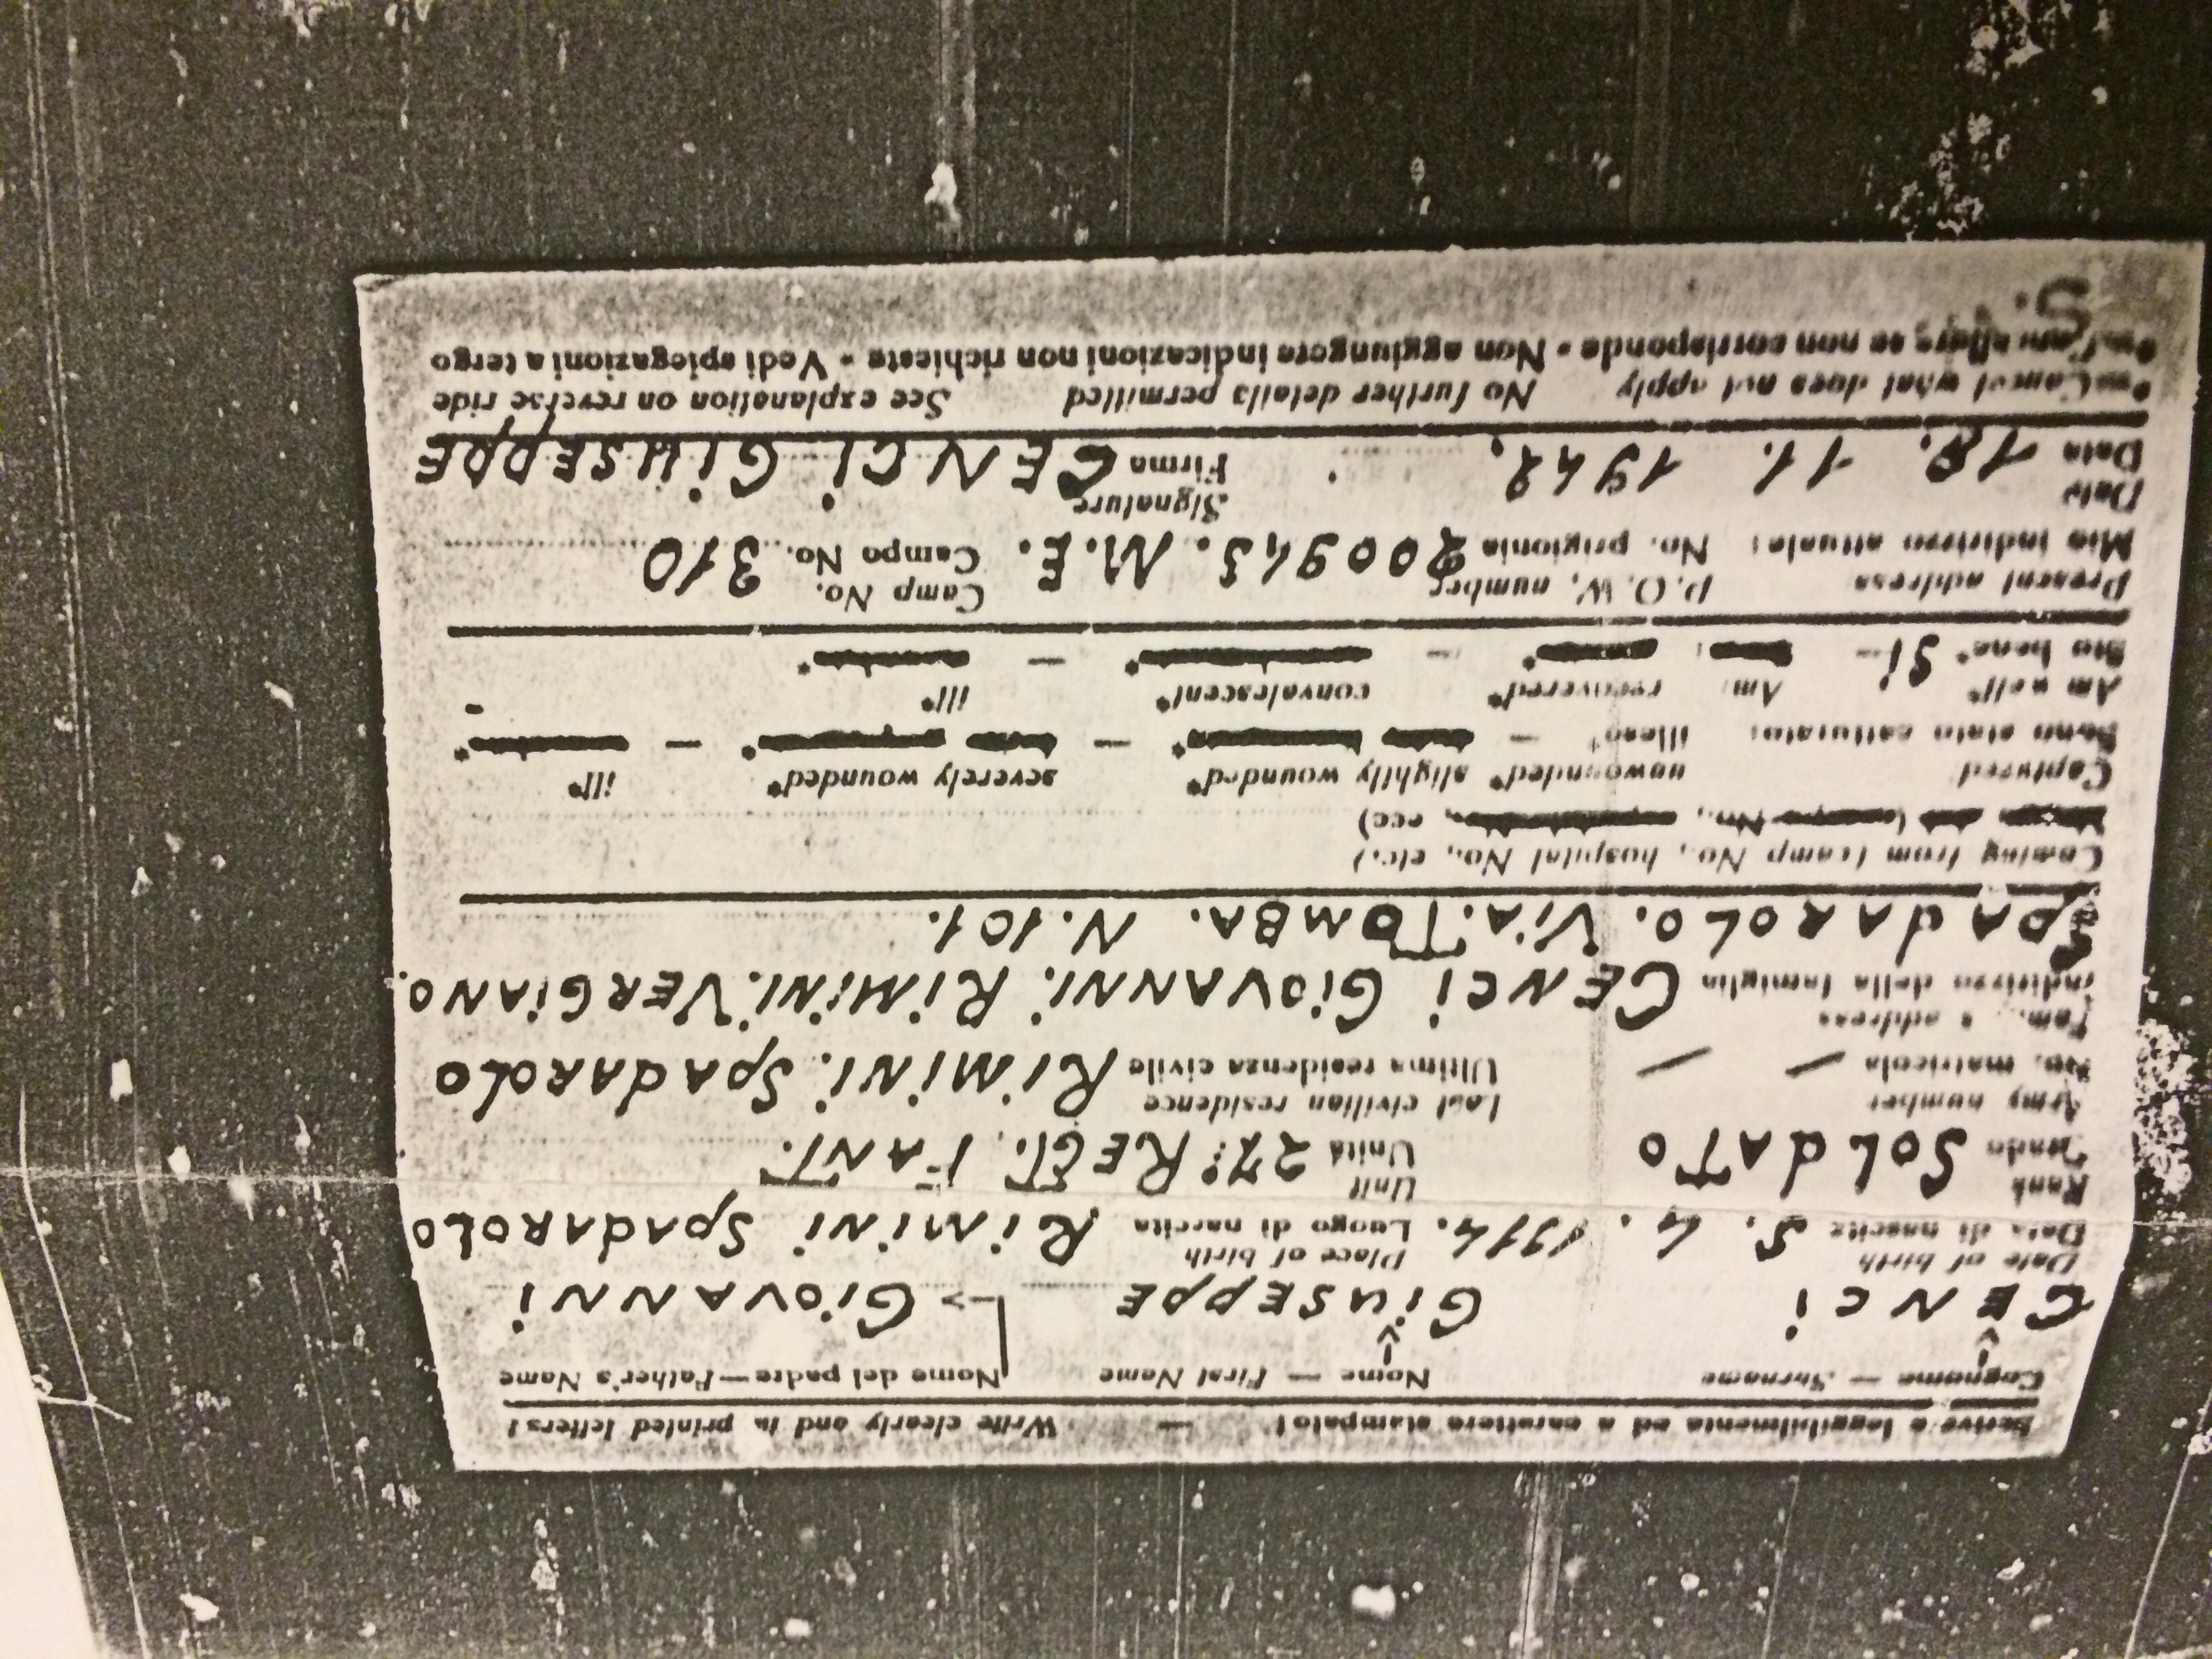 Scrive e leggibilmente ed a carattere stampato! — Write clearly and in printed letters!
Cognome — Surname Nome — First Name Nome del padre — Father's Name
CENCi GiUSEPPE -> GiOVANNi
Date of birth Place of birth
Data di nascita 5. 4. 1914. Luogo di nascita RiMiNi SPAdAROLO
Rank Unit
Grado SOLdATO Unità 27º REGT. FANT.
Army number Last civilian residence
No. matricola — — Ultima residenza civile RiMiNi. SPAdAROLO
address
indirizzo della famiglia CENCi GiOVANNi. RiMiNi. VERGiANO.
SPAdAROLO. ViA. TOMBA. N. 101.
Coming from (camp No., hospital No., etc.)
No., ecc)
Captured unwounded* slightly wounded* severely wounded* ill*
Sono stato catturato: illeso* — — —
Am well* Am: recovered* convalescent* ill*
Sto bene* Si — — —
Present address P.O.W. number Camp No.
Mio indirizzo attuale: No. prigionia 200945. M.E. Campo No. 310
Date Signature
Data 18. 11. 1942. Firma CENCi GiUSEPPE
Cancel what does not apply No further details permitted See explanation on reverse ride
se non corrisponde - Non aggiungere indicazioni non richieste - Vedi spiegazioni a tergo